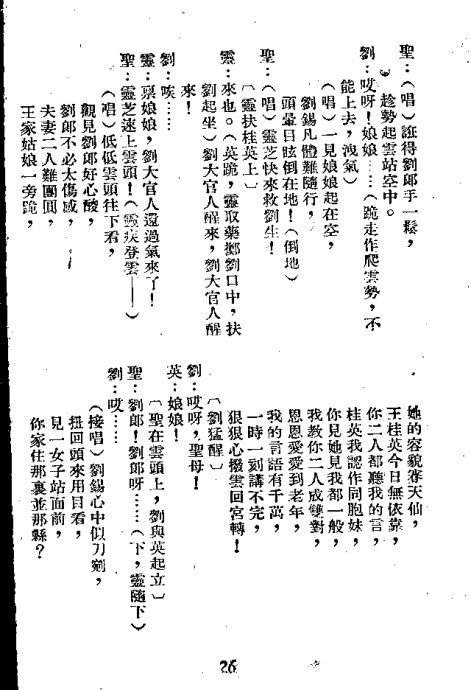 聖：（唱）誆得劉郎手一鬆，
趁勢起雲站空中。
劉：哎呀！娘娘……（跪走作爬雲勢，不
能上去，洩氣）
（唱）一見娘娘起在空，
劉錫凡體難隨行，
頭暈目眩倒在地！（倒地）
聖：（唱）靈芝快來救劉生！
〔靈扶桂英上〕
靈：來也。（英跪，靈取藥擲劉口中，扶
劉起坐）劉大官人醒來，劉大官人醒
來！
劉：唉……
靈：稟娘娘，劉大官人還過氣來了！
聖：靈芝速上雲頭！（靈疾登雲——）
（唱）低低雲頭往下看，
觀見劉郎好心酸，
劉郎不必太傷感，
夫妻二人難團圓，
王家姑娘一旁跪，
她的容貌賽天仙，
王桂英今日無依靠，
你二人都聽我的言，
桂英我認作同胞妹，
你見她見我都一般，
我教你二人成雙對，
恩恩愛愛到老年，
我的言語有千萬，
一時一刻講不完，
狠狠心撥雲回宮轉！
〔劉猛醒〕
劉：哎呀，聖母！
英：娘娘！
〔聖在雲頭上，劉與英起立〕
聖：劉郎！劉郎呀……（下，靈隨下）
劉：哎……
（接唱）劉錫心中似刀剜，
扭回頭來用目看，
見一女子站面前，
你家住那裏並那縣？
26